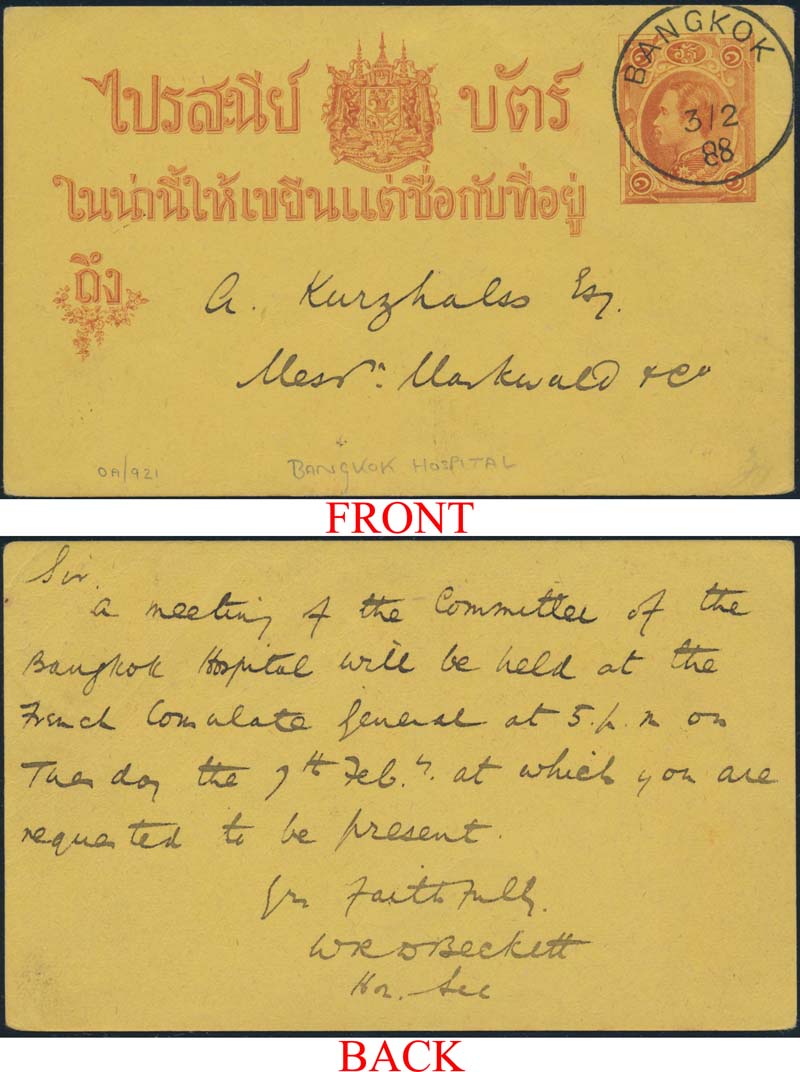 ไปรสนีย์ บัตร์
BANGKOK
3/2
88
ในน่านี้ให้เขยีนแต่ชื่อกับที่อยู่
ถึง
A. Kurzhalss Esq.
Messrs. Markwald & Co
OA/921
BANGKOK HOSPITAL
FRONT
Sir,
A meeting of the Committee of the
Bangkok Hospital will be held at the
French Consulate General at 5 p.m on
Tuesday the 7th Feby. at which you are
requested to be present.
Yrs Faithfully.
WRDBeckett
Hon. Sec
BACK